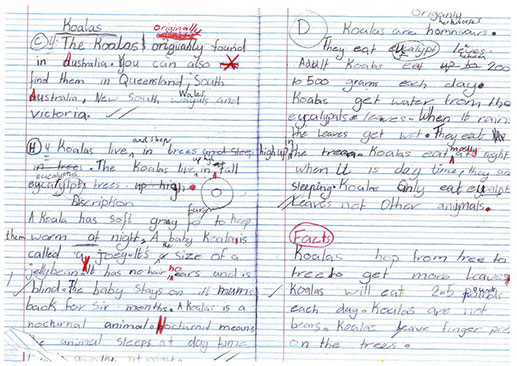 Koalas
originally
C 4 The Koalas originally found
in Australia. You can also
find them in Queensland, South
Wales
Australia, New South and
Victoria.
and sleep
H 4 Koalas live in trees and sleep high up
in trees. The Koalas live in tall
up high
eucalyptus
trees. up high.
Discription
furr
A Koala has soft gray to keep
them warm at night. A baby Koala is
called a Joey. It's the size of a
jellybean. It has no hair no ears and is
blind. The baby stays on its mums
back for six months. A Koala is a
nocturnal animal. Nocturnal means
the animal sleeps at day time
D
Koalas are homnivurs.
They eat leaves.
between
Adult Koalas eat up to 200
to 500 grams each day.
Koalas get water from the
leaves. When it rains
the leaves get wet. They eat
in the trees. Koalas eat mostly night
when it is day time, they are
sleeping. Koalas only eat
Leaves not other animals.
Facts
Koalas hop from tree to
tree to get more leaves
Koalas will eat 2.5
each day. Koalas are not
bears. Koalas leave finger
on the trees.